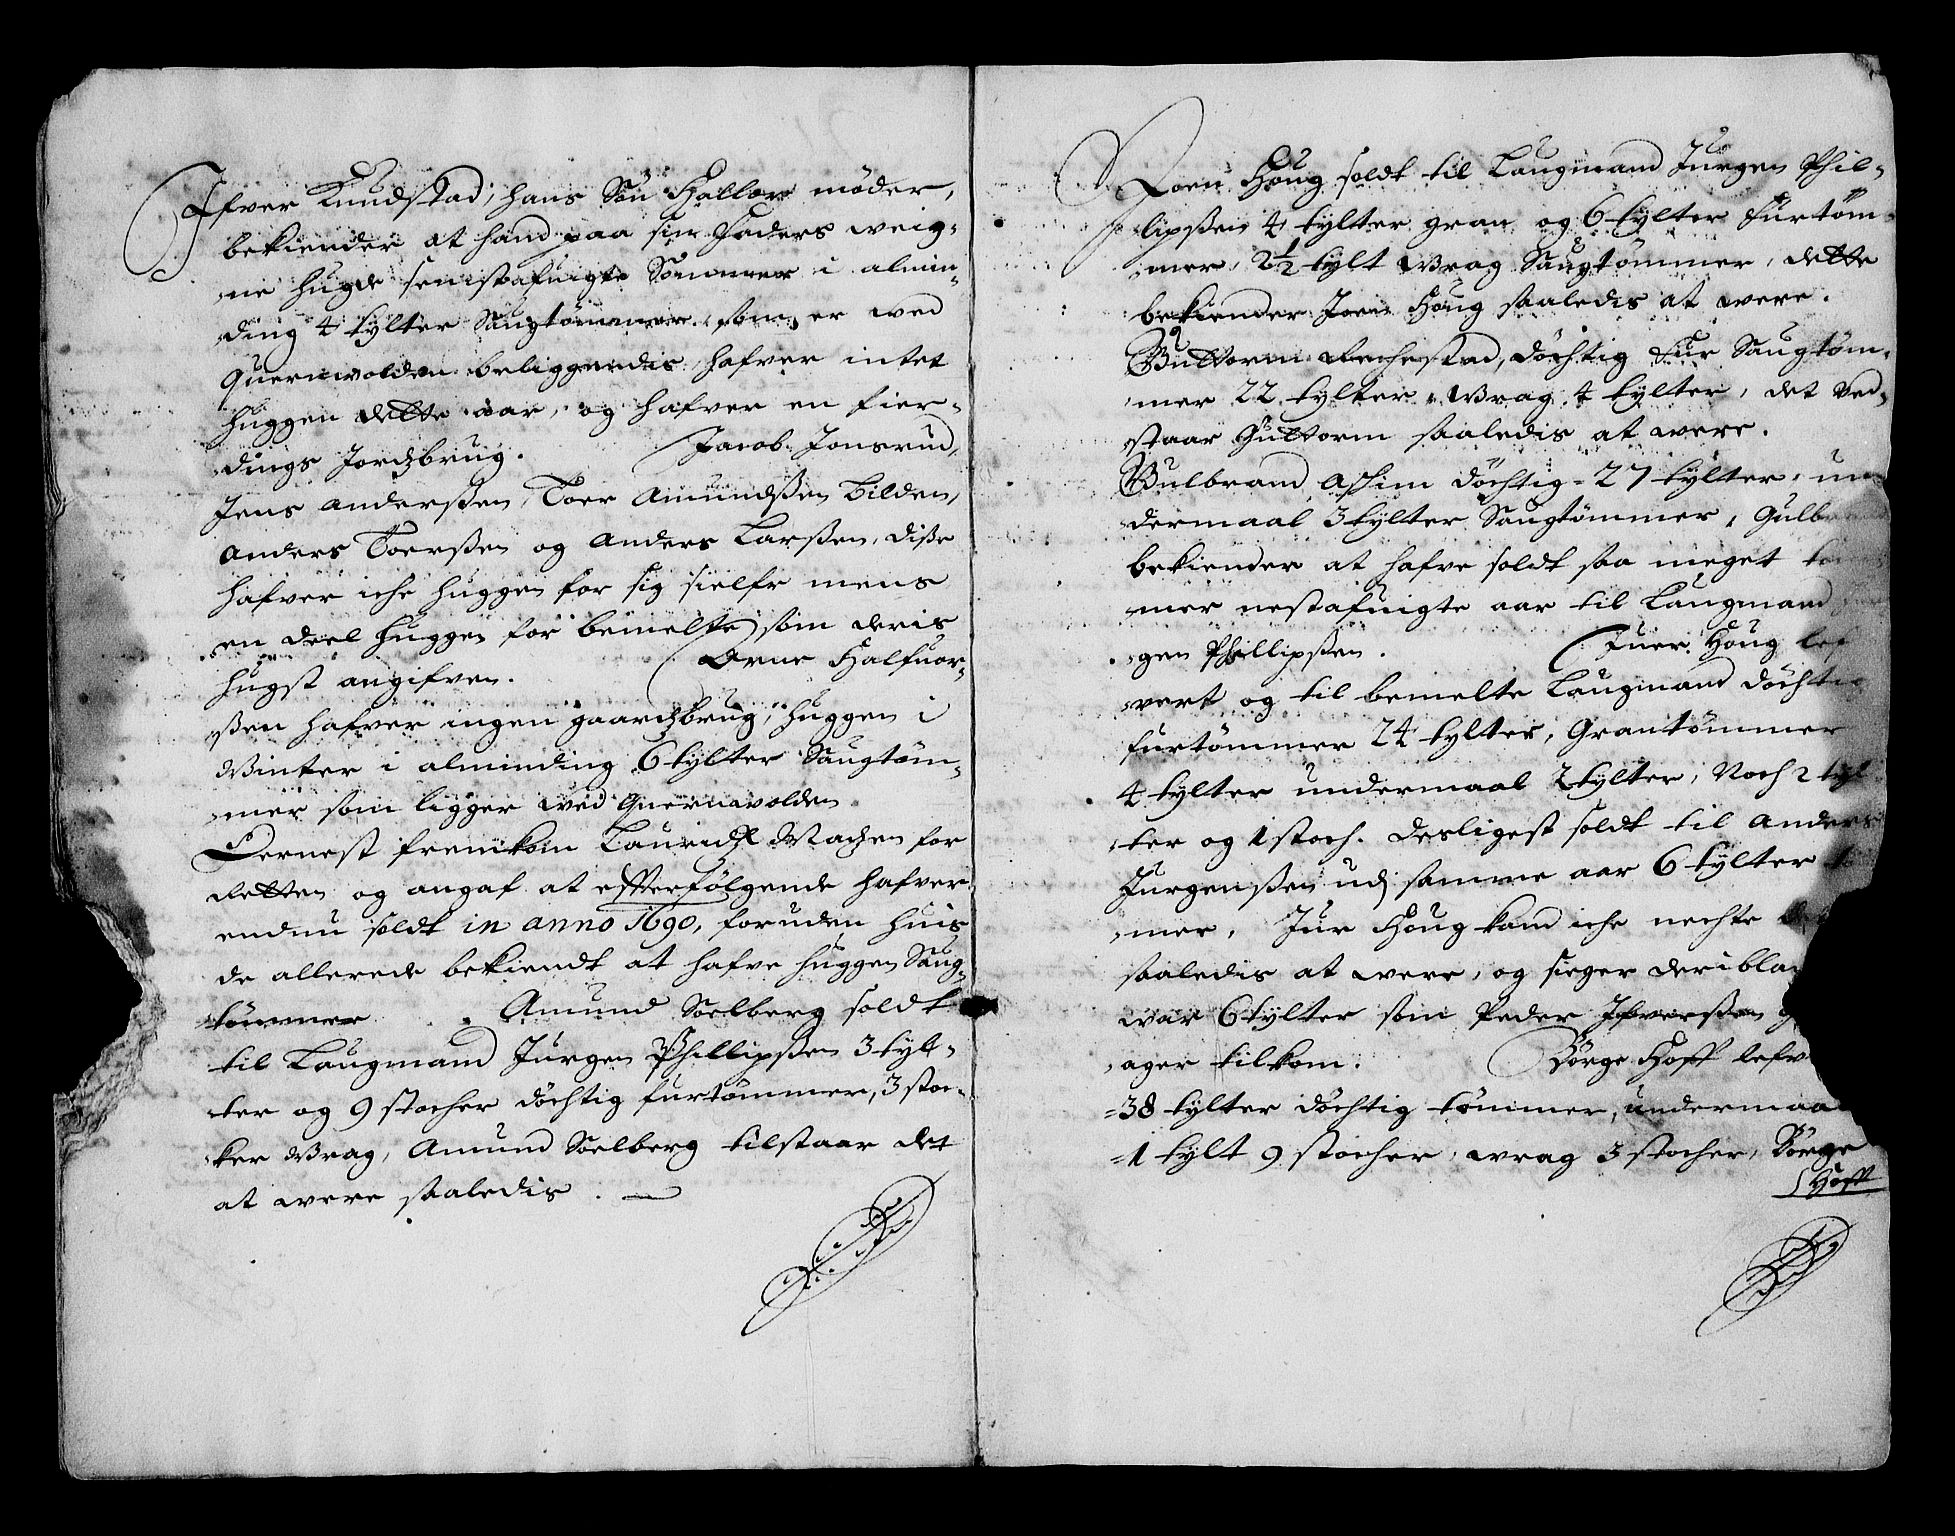 Ifver Knudstad, hans Sön Hallor möder,
bekiender at hand paa sin Faders weig-
ne hugde senistafuigte Sommer i almin-
ding 4 tylter Saugtömmer, som er wed
Quernvolden beliggendis, hafver intet
huggen dette aar, og hafver en fier-
dings Jordsbrug. Jacob Jonsrud,
Jens Anderssen, Toer Amundssen Bilden,
Anders Toerssen og Anders Larssen, disse
hafver iche huggen for sig sielfv mens
en deel huggen for bemelte som deris
hugst angifven. Arne Halfuor-
ssen hafver ingen gaardsbrug, huggen i
Winter i alminding 6 tylter Saugtöm-
mer som ligger wed Quernvolden.
Dernest fremkom Lauridtz Madsen for
Retten og angaf at efterfölgende hafver
endnu soldt in anno 1690, foruden huis
de allerede bekiendt at hafve huggen Saug-
tömmer. Amund Soelberg soldt
til Laugmand Jurgen Phillipssen 3 tyl-
ter og 9 stocher döchtig furtömmer, 3 stoc-
ker Wrag, Amund Soelberg tilstaar det
at were saaledis.
Joen Houg soldt til Laugmand Jurgen Phil-
lipssen 4 tylter gran og 6 tylter Furtöm-
mer, 2½ tylt Wrag Saugtömmer, dette
bekiender Joen Houg saaledis at were.
Guttorm Rechestad, döchtig Fur Saugtöm-
mer 22 tylter, Wrag 4 tylter, det ved-
staar Guttorm saaledis at were.
Gulbrand Assim döchtig 27 tylter, un-
dermaal 3 tylter Saugtömmer, Gulbrand
bekiender at hafve soldt saa meget
mer nestafuigte aar til Laugmand
gen Phillipssen. Juer Houg lef
vert og til bemelte Laugmand döchtig
furtömmer 24 tylter, Grantömmer
4 tylter undermaal 2 tylter, Noch 2 tyl
ter og 1 stoch. Desligest soldt til Anders
Jurgenssen udj samme aar 6 tylter
mer, Jur Houg kand iche nechte
saaledis at were, og sieger deriblan
war 6 tylter som Peder Ifverssen
ager tilkom. Börge Hoff lefv
38 tylter döchtig tömmer, undermaa
1 tylt 9 stocher, wrag 3 stocher, Börge
Hoff